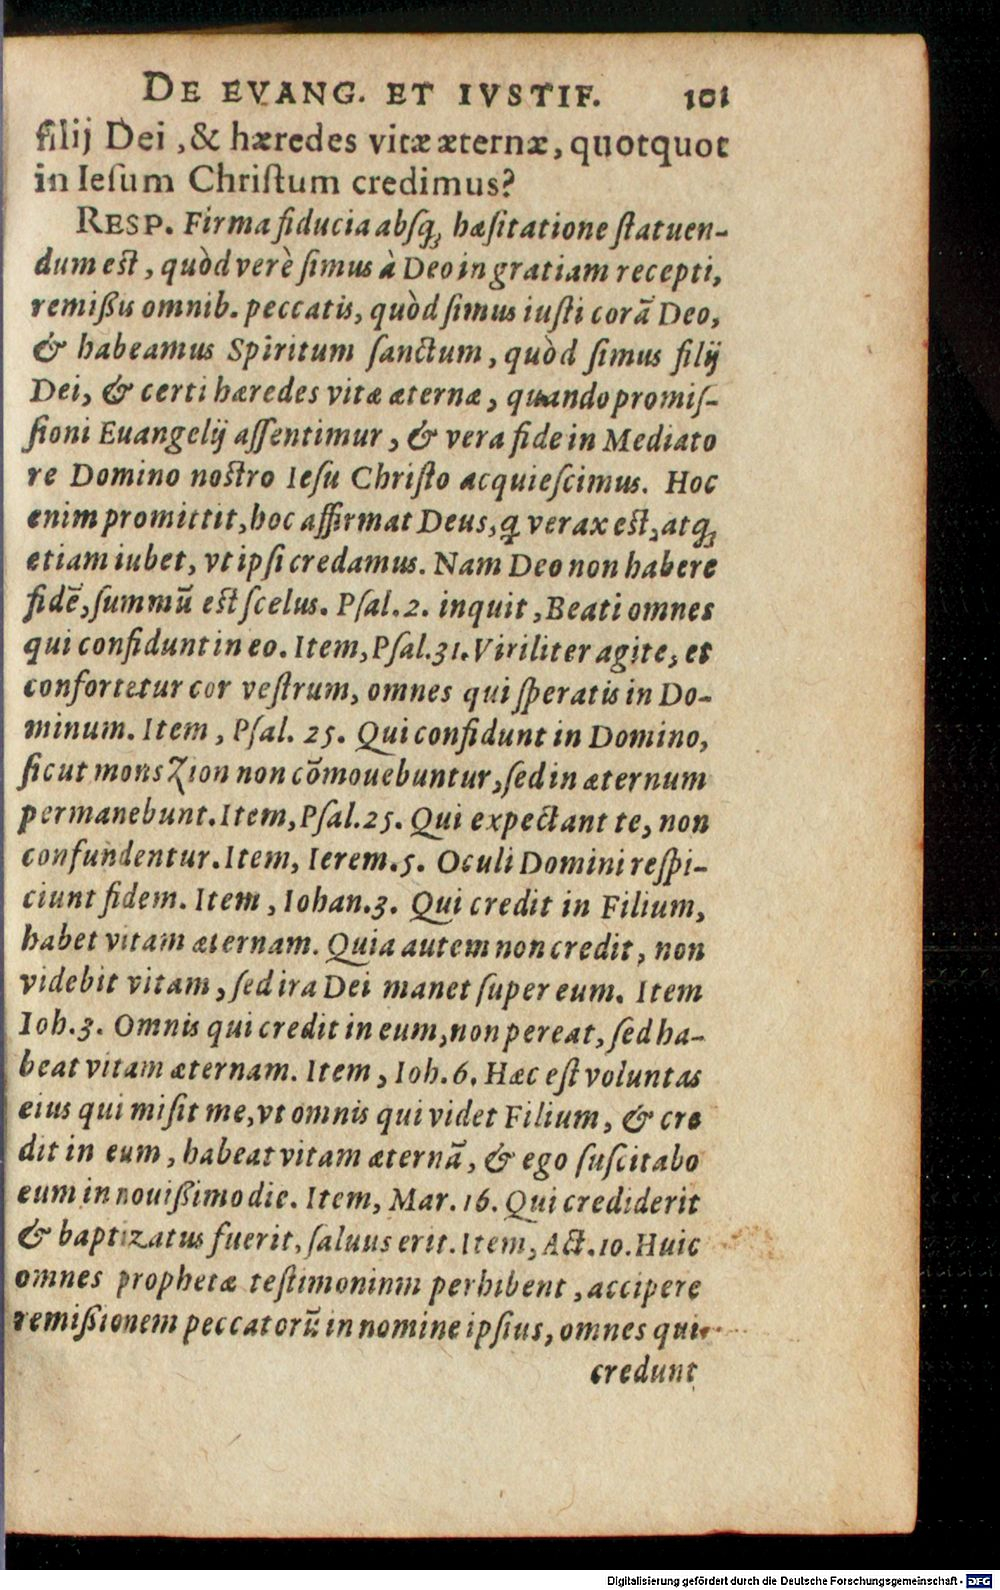 DE EVANG. ET IVSTIF. 101
filij Dei, & hæredes vitæ æternæ, quotquot
in Iesum Christum credimus?
RESP. Firma fiducia absq; hæsitatione statuen-
dum est, quòd verè simus à Deo in gratiam recepti,
remißis omnib. peccatis, quòd simus iusti corã Deo,
& habeamus Spiritum sanctum, quòd simus filij
Dei, & certi hæredes vitæ æternæ, quando promis-
sioni Euangelij assentimur, & vera fide in Mediato
re Domino nostro Iesu Christo acquiescimus. Hoc
enim promittit, hoc affirmat Deus, q̃ verax est, atq;
etiam iubet, vt ipsi credamus. Nam Deo non habere
fidẽ, summũ est scelus. Psal. 2. inquit, Beati omnes
qui confidunt in eo. Item, Psal. 31. Viriliter agite, et
confortetur cor vestrum, omnes qui speratis in Do-
minum. Item, Psal. 25. Qui confidunt in Domino,
sicut mons Zion non cõmouebuntur, sed in æternum
permanebunt. Item, Psal. 25. Qui expectant te, non
confundentur. Item, Ierem. 5. Oculi Domini respi-
ciunt fidem. Item, Iohan. 3. Qui credit in Filium,
habet vitam æternam. Quia autem non credit, non
videbit vitam, sed ira Dei manet super eum. Item
Ioh. 3. Omnis qui credit in eum, non pereat, sed ha-
beat vitam æternam. Item, Ioh. 6. Hæc est voluntas
eius qui misit me, vt omnis qui videt Filium, & cre
dit in eum, habeat vitam æternã, & ego suscitabo
eum in nouißimo die. Item, Mar. 16. Qui crediderit
& baptizatus fuerit, saluus erit. Item, Act. 10. Huic
omnes prophetæ testimonium perhibent, accipere
remißionem peccatorũ in nomine ipsius, omnes qui
credunt
Digitalisierung gefördert durch die Deutsche Forschungsgemeinschaft - DFG